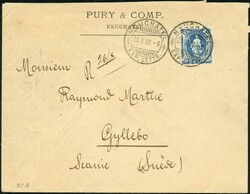 PURY & COMP.
NEUCHATEL
NEUCHATEL
R 2613
Monsieur
Raymond Marthe
Gyllebo
Scanie (Suède)